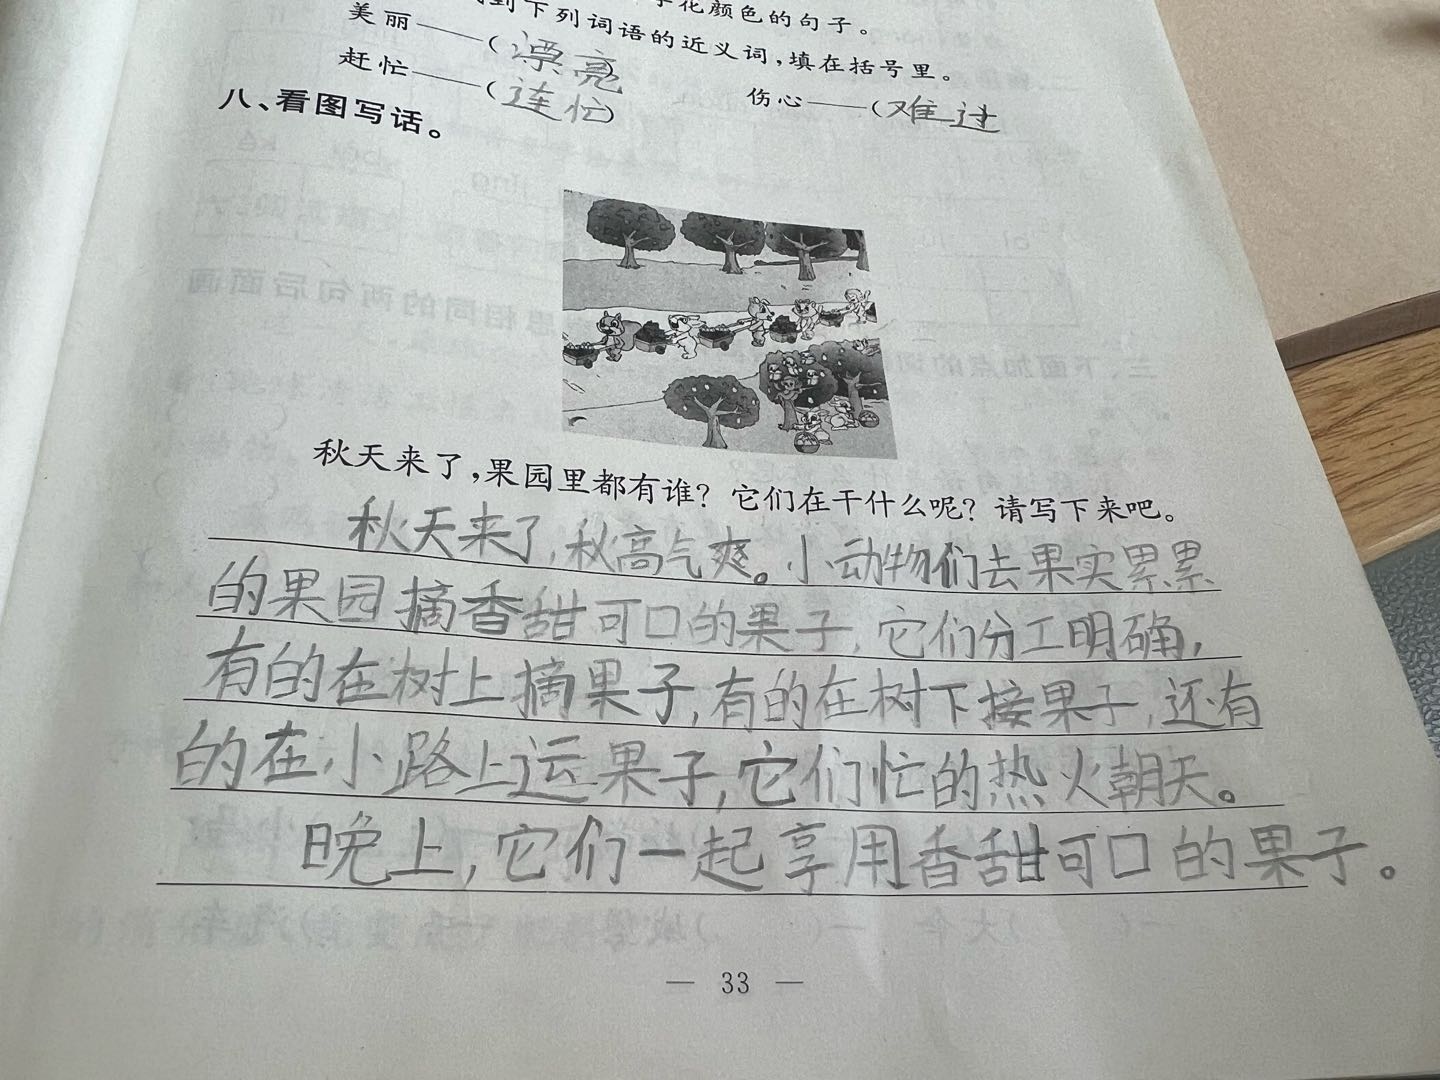 花颜色的句子。
到下列词语的近义词，填在括号里。
美丽——（漂亮）
赶忙——（连忙） 伤心——（难过
八、看图写话。
秋天来了，果园里都有谁？它们在干什么呢？请写下来吧。
秋天来了，秋高气爽。小动物们去果实累累
的果园摘香甜可口的果子，它们分工明确，
有的在树上摘果子，有的在树下接果子，还有
的在小路上运果子，它们忙的热火朝天。
晚上，它们一起享用香甜可口的果子。
— 33 —